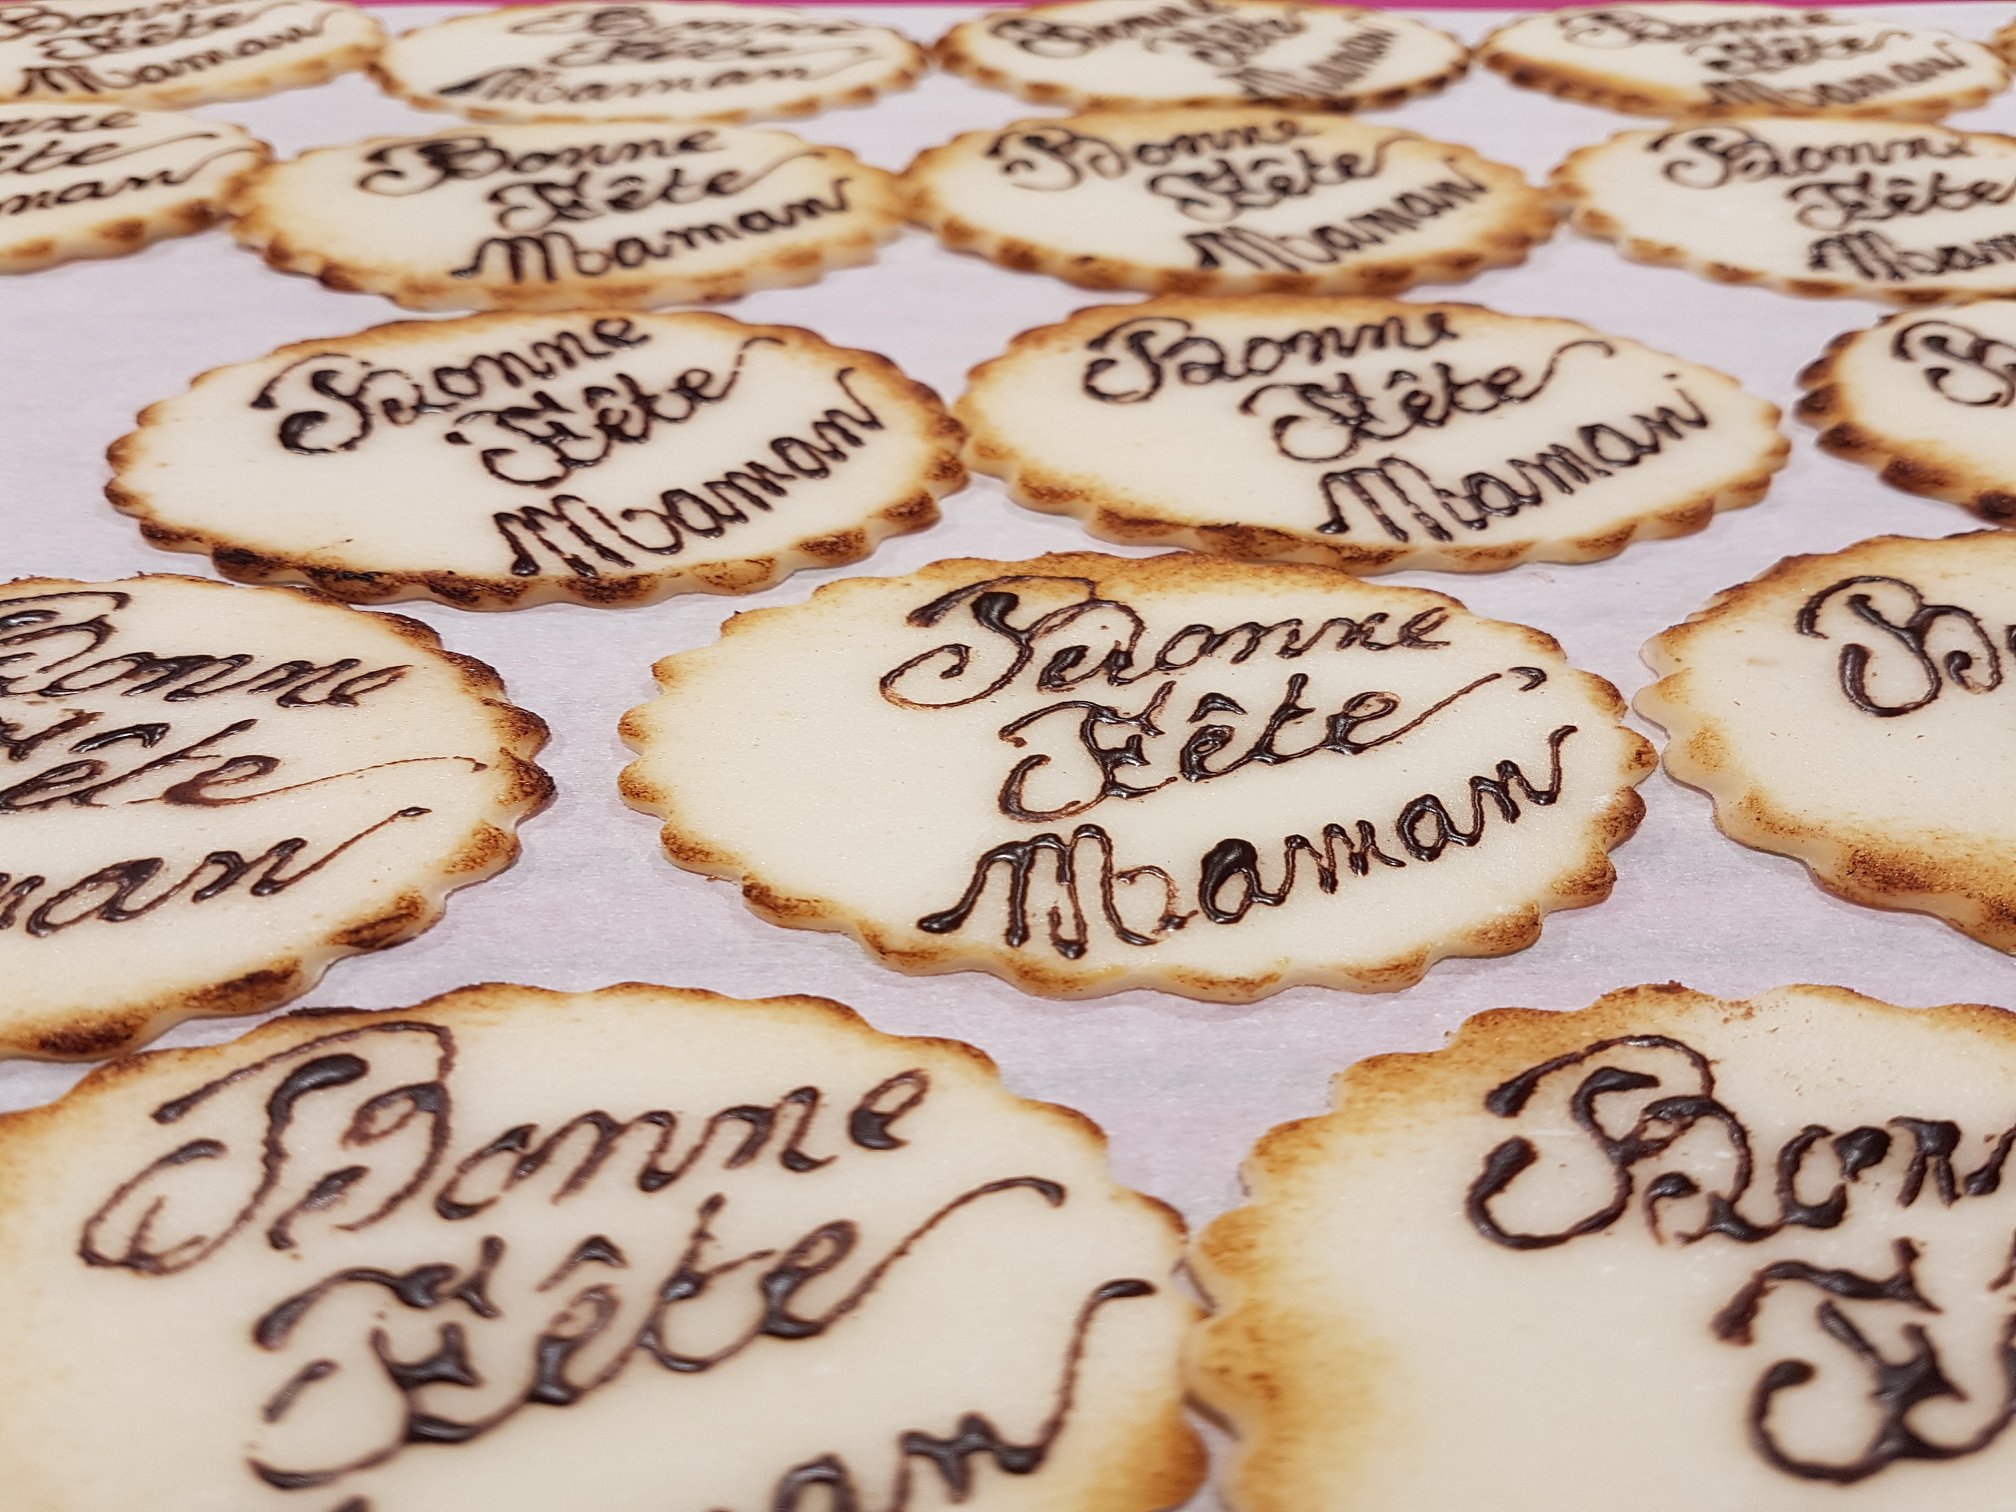 Bonne
Fête
Maman
Bonne
Fête
Maman
Bonne
Fête
Maman
Bonne
Fête
Maman
Bonne
Fête
Maman
Bonne
Fête
Maman
Bonne
Fête
Maman
Bonne
Fête
Maman
Bonne
Fête
Maman
Bonne
Fête
Maman
Bonne
Fête
Bonne
Fête
Maman
Bonne
Fête